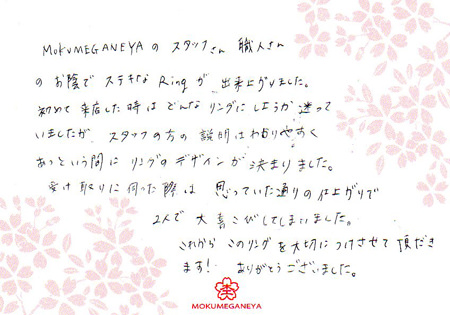 MOKUMEGANEYAの スタッフさん 職人さん
のお陰で ステキなRingが、出来上がりました。
初めて来店した時は どんなリングにしようか迷って
いましたが、スタッフの方の説明はわかりやすく
あっという間に リングのデザインが決まりました。
受け取りに伺った際は 思っていた通りの仕上がりで
2人で大喜こびしてしまいました。
これから このリングを大切につけさせて頂だき
ます! ありがとうございました。
MOKUMEGANEYA